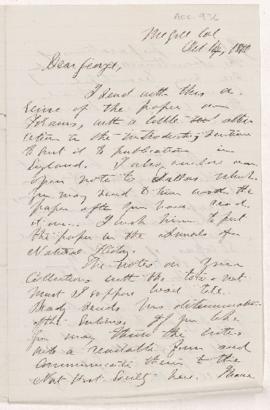 McGill Col
Oct 14, 18
Dear George,
I send with this a
of the paper on
with a little
in the introductory sentence
to suit it to publication in
England. I also enclose an
open note to Dallas which
you may send to him with the
paper after you have read
it over. I wish him to put
the paper in the Annals of
Natural History.
The notes on your
Collections with the
must I suppose wait till
Brady sends his determination
of the If you like
you may throw the notes
into a readable form and
communicate them to the
Nat Hist Society here.